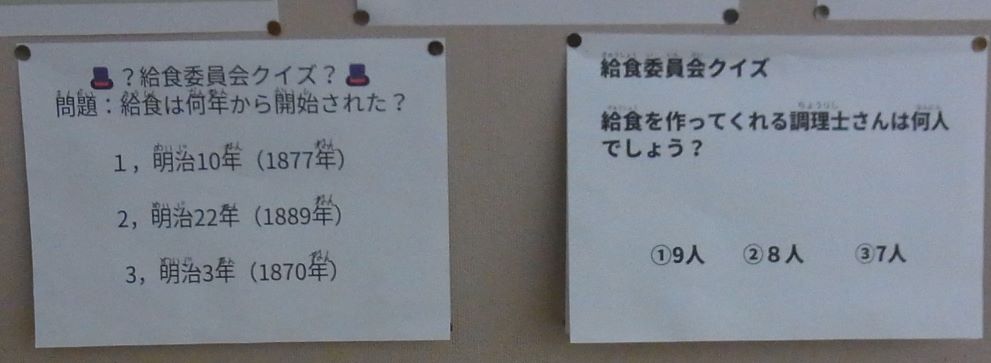 ？給食委員会クイズ？
問題：給食は何年から開始された？
1，明治10年（1877年）
2，明治22年（1889年）
3，明治3年（1870年）
給食委員会クイズ
給食を作ってくれる調理士さんは何人
でしょう？
①9人 ②８人 ③7人